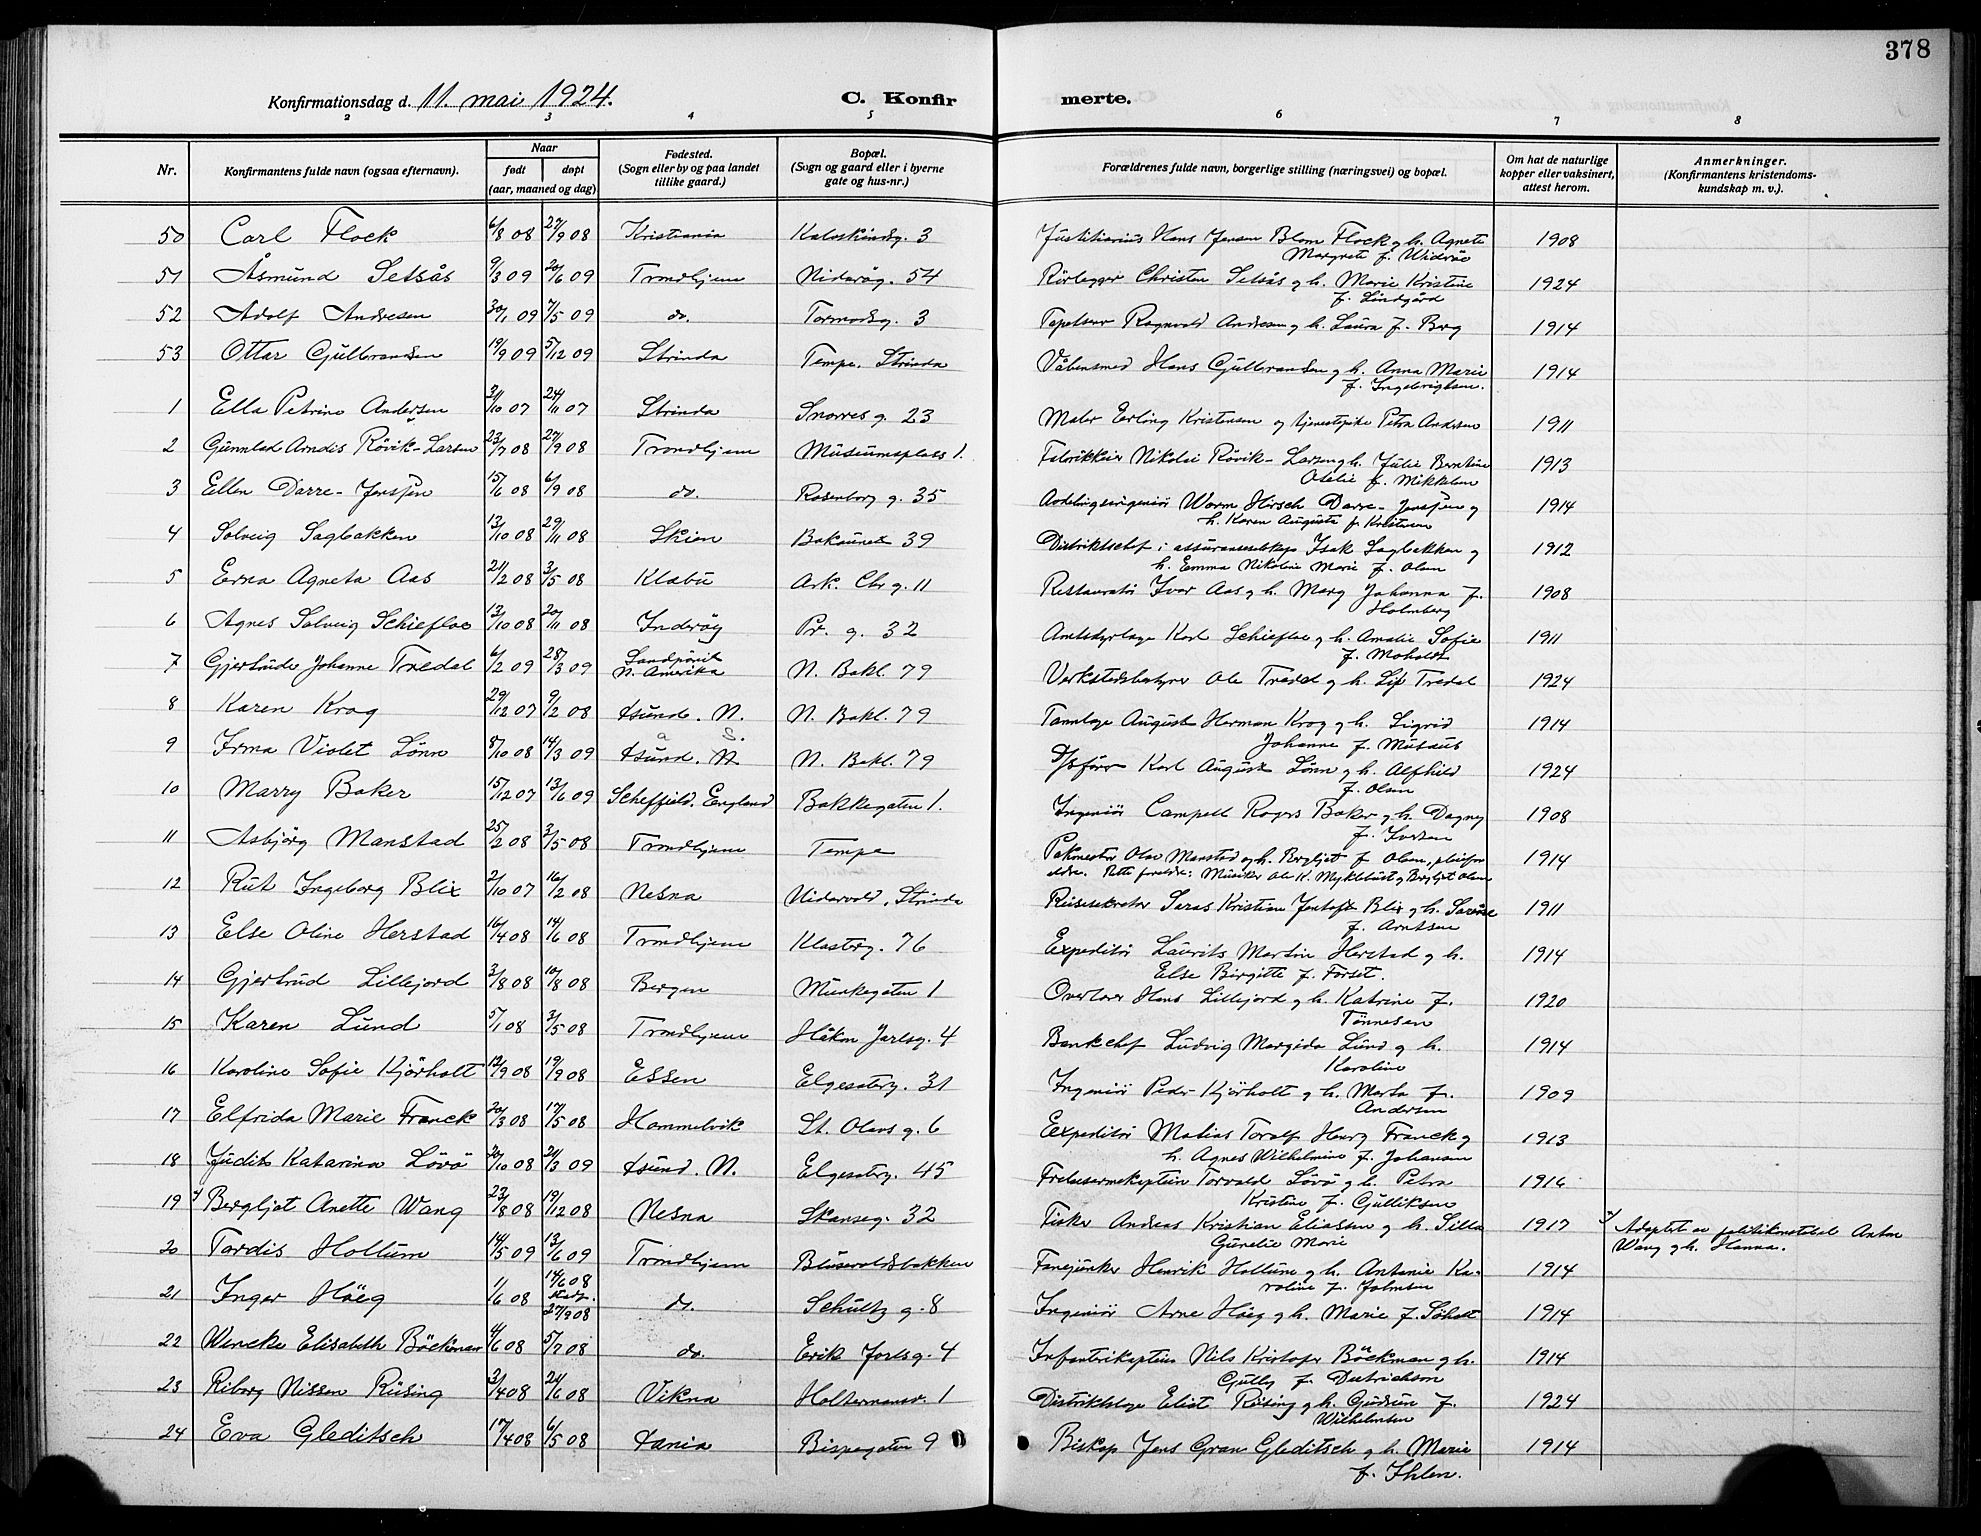 378
Konfirmationsdag d. 11. mai 1924. C. Konfirmerte.
2 3 4 5 6 7 8
Nr. Konfirmantens fulde navn (ogsaa efternavn). Naar født døpt (aar, maaned og dag) Fødested. (Sogn eller by og paa landet tillike gaard.) Bopæl. (Sogn og gaard eller i byerne gate og hus-nr.) Forældrenes fulde navn, borgerlige stilling (næringsvei) og bopæl. Om hat de naturlige kopper eller vaksinert, attest herom. Anmerkninger. (Konfirmantens kristendomskundskap m. v.).
50 Carl Flock 6/8 08 27/9 08 Kristiania Kalvskindsg. 3 Justitiarius Hans Jensen Blom Flock g h. Agnete 1908
Margrete f. Widröe
51 Åsmund Setsås 9/3 09 20/6 09 Trondhjem Nidaròg. 54 Rörlegger Christen Setsås g h. Marie Kristine 1924
f. Lindgård
52 Adolf Andresen 30/1 09 7/5 09 do. Tormodsg. 3 Tapetserer Ragnvald Andresen g h. Laura f. Berg 1914
53 Ottar Gulbrandsen 19/9 09 5/12 09 Strinda Tempe, Strinda Våbensmed Hans Gulbrandsen g h. Anna Marie 1914
f. Ingebrigtsen.
1 Ella Petrine Andersen 31/10 07 24/11 07 Strinda Snorres g. 23 Maler Erling Kristensen og tjenestepike Petra Andersen 1911
2 Gunnlad Arndis Rövik-Larsen 23/7 08 27/9 08 Trondhjem Museumsplass 1. Fabrikkeier Nikolai Rövik-Larsen g h. Julie Berntine 1913
Otelie f. Mikkelsen
3 Ellen Darre-Jenssen 15/6 08 6/9 08 do. Rosenborg g. 35 Avdelingsingeniör Worm Hirsch Darre-Jenssen g 1914
h. Karen Augusta f. Kristensen
4 Solveig Sagbakken 13/10 08 29/11 08 Skien Bakaunet 39 Distriktschef i assuranseselskap Isak Sagbakken g 1912
h. Emma Nikoline Marie f. Olsen
5 Erna Agneta Aas 21/2 08 3/5 08 Klæbu Ark. Chr g. 11 Restauratör Ivar Aas g h. Mary Johanna f. 1908
Holmberg
6 Agnes Solveig Schiefloe 13/10 08 20/11 08 Inderöy Pr. g. 32 Amtsdyrlæge Karl Schiefloe g h. Amalie Sofie 1911
f. Moholdt
7 Gjertrude Johanne Tredal 6/2 09 28/3 09 Sandpoint N. Amerika N. Bakl. 79 Verkstedsbestyrer Ole Tredal g h. Lif Tredal 1924
8 Karen Krog 29/12 07 9/2 08 Xsund. N. N. Bakl. 79 Tannlæge August Herman Krog g h. Sigrid 1914
Johanne f. Musæus
9 Irma Violet Lönn 8/10 08 14/3 09 Xsund. N N. Bakl. 79 D/sförer Karl August Lönn g h. Alfhild 1924
f. Olsen
10 Marry Baker 15/12 07 13/6 09 Scheffield, England Bakkegaten 1. Ingeniör Campell Rogers Baker g h. Dagny 1908
f. Iversen
11 Asbjörg Manstad 25/2 08 3/5 08 Trondhjem Tempe Pakmester Olav Manstad og h. Bergljot f. Olsen, pleiefor- 1914
eldre. Rette foreldre: Musiker Ole K. Myklebust g Bergljot Olsen
12 Rut Ingeborg Blix 2/10 07 16/2 08 Nesna Nidarvold, Strinda Reisesekretær Saras Kristian Jentoft Blix g h. 1911
f. Arntsen
13 Else Oline Herstad 16/4 08 14/6 08 Trondhjem Klosterg. 76 Expeditör Laurits Martin Herstad g h. 1914
Else Birgitte f. Forset.
14 Gjertrud Lillejord 2/8 08 10/8 08 Bergen Munkegaten 1 Overlærer Hans Lillejord g h. Katrine f. 1920
Tönnesen
15 Karen Lund 5/1 08 3/5 08 Trondhjem Håkon Jarlsg. 4 Bankchef Ludvig Margido Lund g h. 1914
Karoline
16 Karoline Sofie Kjörholt 12/9 08 19/9 08 Essen Elgesæterg. 31 Ingeniör Peder Kjörholt g h. Marta f. 1909
Andersen
17 Elfrida Marie Franck 20/3 08 17/5 08 Hommelvik St. Olavs g. 6 Expeditör Matias Toralf Henry Franck g 1913
h. Agnes Wilhelmine f. Johansen
18 Judit Katarina Lövö 20/10 08 21/3 09 Xsund. N. Elgesæterg. 45 Frelsesarmekaptein Torvald Lövö g h. Petra 1916
Kristine f. Gulliksen
19 Bergljot Anette Wang 23/8 08 19/12 08 Nesna Skanseg. 32 Fisker Andreas Kristian Eliassen g h. Silla 1917 Adoptet av politikonstabel Anton
Gurelie Marie Wang g h. Hanna.
20 Tordis Hollum 14/5 09 13/6 09 Trondhjem Blusevoldsbakken Fanejunker Henrik Hollum g h. Antonie Ka- 1914
roline f. Johnsen
21 Inger Höeg 1/6 08 14/6 08 stadf. 27/9 08 do. Schultz g. 8 Ingeniör Arne Höeg g h. Marie f. Söholt 1914
22 Wencke Elisabeth Böckman 4/6 08 5/7 08 do. Erik Jarlsg. 4 Infanterikaptein Nils Kristofer Böckman g h. 1914
Gully f. Dietrichson
23 Riborg Nissen Rüsing 3/4 08 21/6 08 Vikna Holtermannsv. 1 Distriktslæge Elist Rüsing g h. Gudrun f. 1924
Wilhelmsen
24 Eva Gleditsch 17/4 08 6/5 08 Xania Bispegaten 9 Biskop Jens Gran Gleditsch g h. Marie 1914
f. Ihlen.